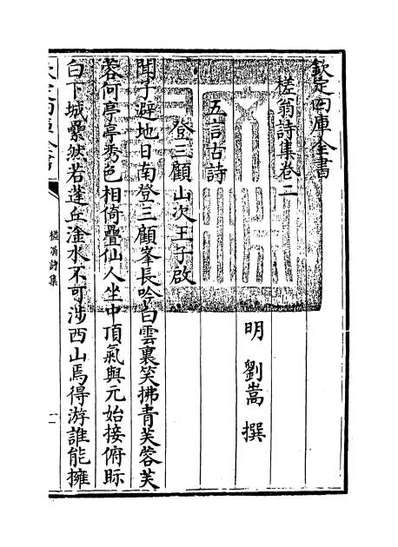 欽定四庫全書
槎翁詩集卷二
明 劉嵩 撰
五言古詩
登三顧山次王子啟
聞子避地日南登三顧峯長吟白雲裏笑拂青芙蓉芙
蓉何亭亭秀色相倚疊仙人坐中頂氣與元始接俯眎
白下城纍然若蓬丘淦水不可涉西山焉得游誰能擁
欽定四庫全書
槎翁詩集
一